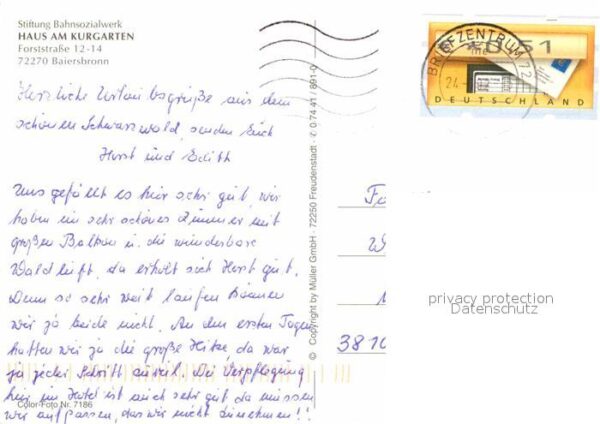 Stiftung Bahnsozialwerk
HAUS AM KURGARTEN
Forststraße 12-14
72270 Baiersbronn
Herzliche Urlaubsgrüße aus dem
schönen Schwarzwald, senden Euch
Horst und Edith
Uns gefällt es hier sehr gut, wir
haben ein sehr schönes Zimmer mit
großem Balkon u. die wunderbare
Waldluft, da erholt sich Horst gut.
Denn so sehr weit laufen können
wir ja beide nicht. An den ersten Tagen
hatten wir ja die große Hitze, da war
ja jeder Schritt zuviel. Die Verpflegung
hier im Hotel ist auch sehr gut da müssen
wir aufpassen, das wir nicht zunehmen!!
Color-Foto Nr. 7186
© Copyright by Müller GmbH · 72250 Freudenstadt · ✆ 0 74 41 / 891-0
BRIEFZENTRUM 72
24
0,51
DEUTSCHLAND
3810
privacy protection
Datenschutz